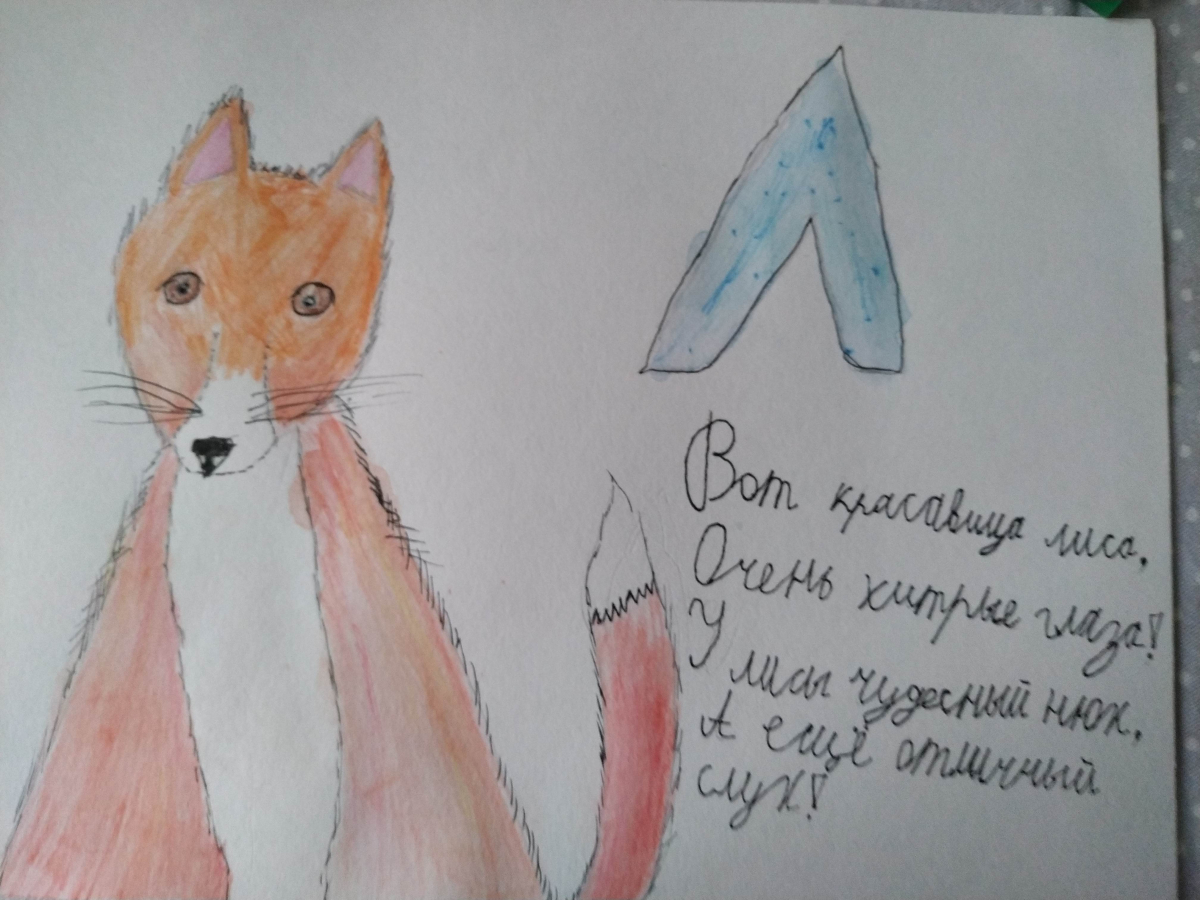 Л
Вот красавица лиса,
Очень хитрые глаза!
У
лисы чудесный нюх,
А ещё отличный
слух!